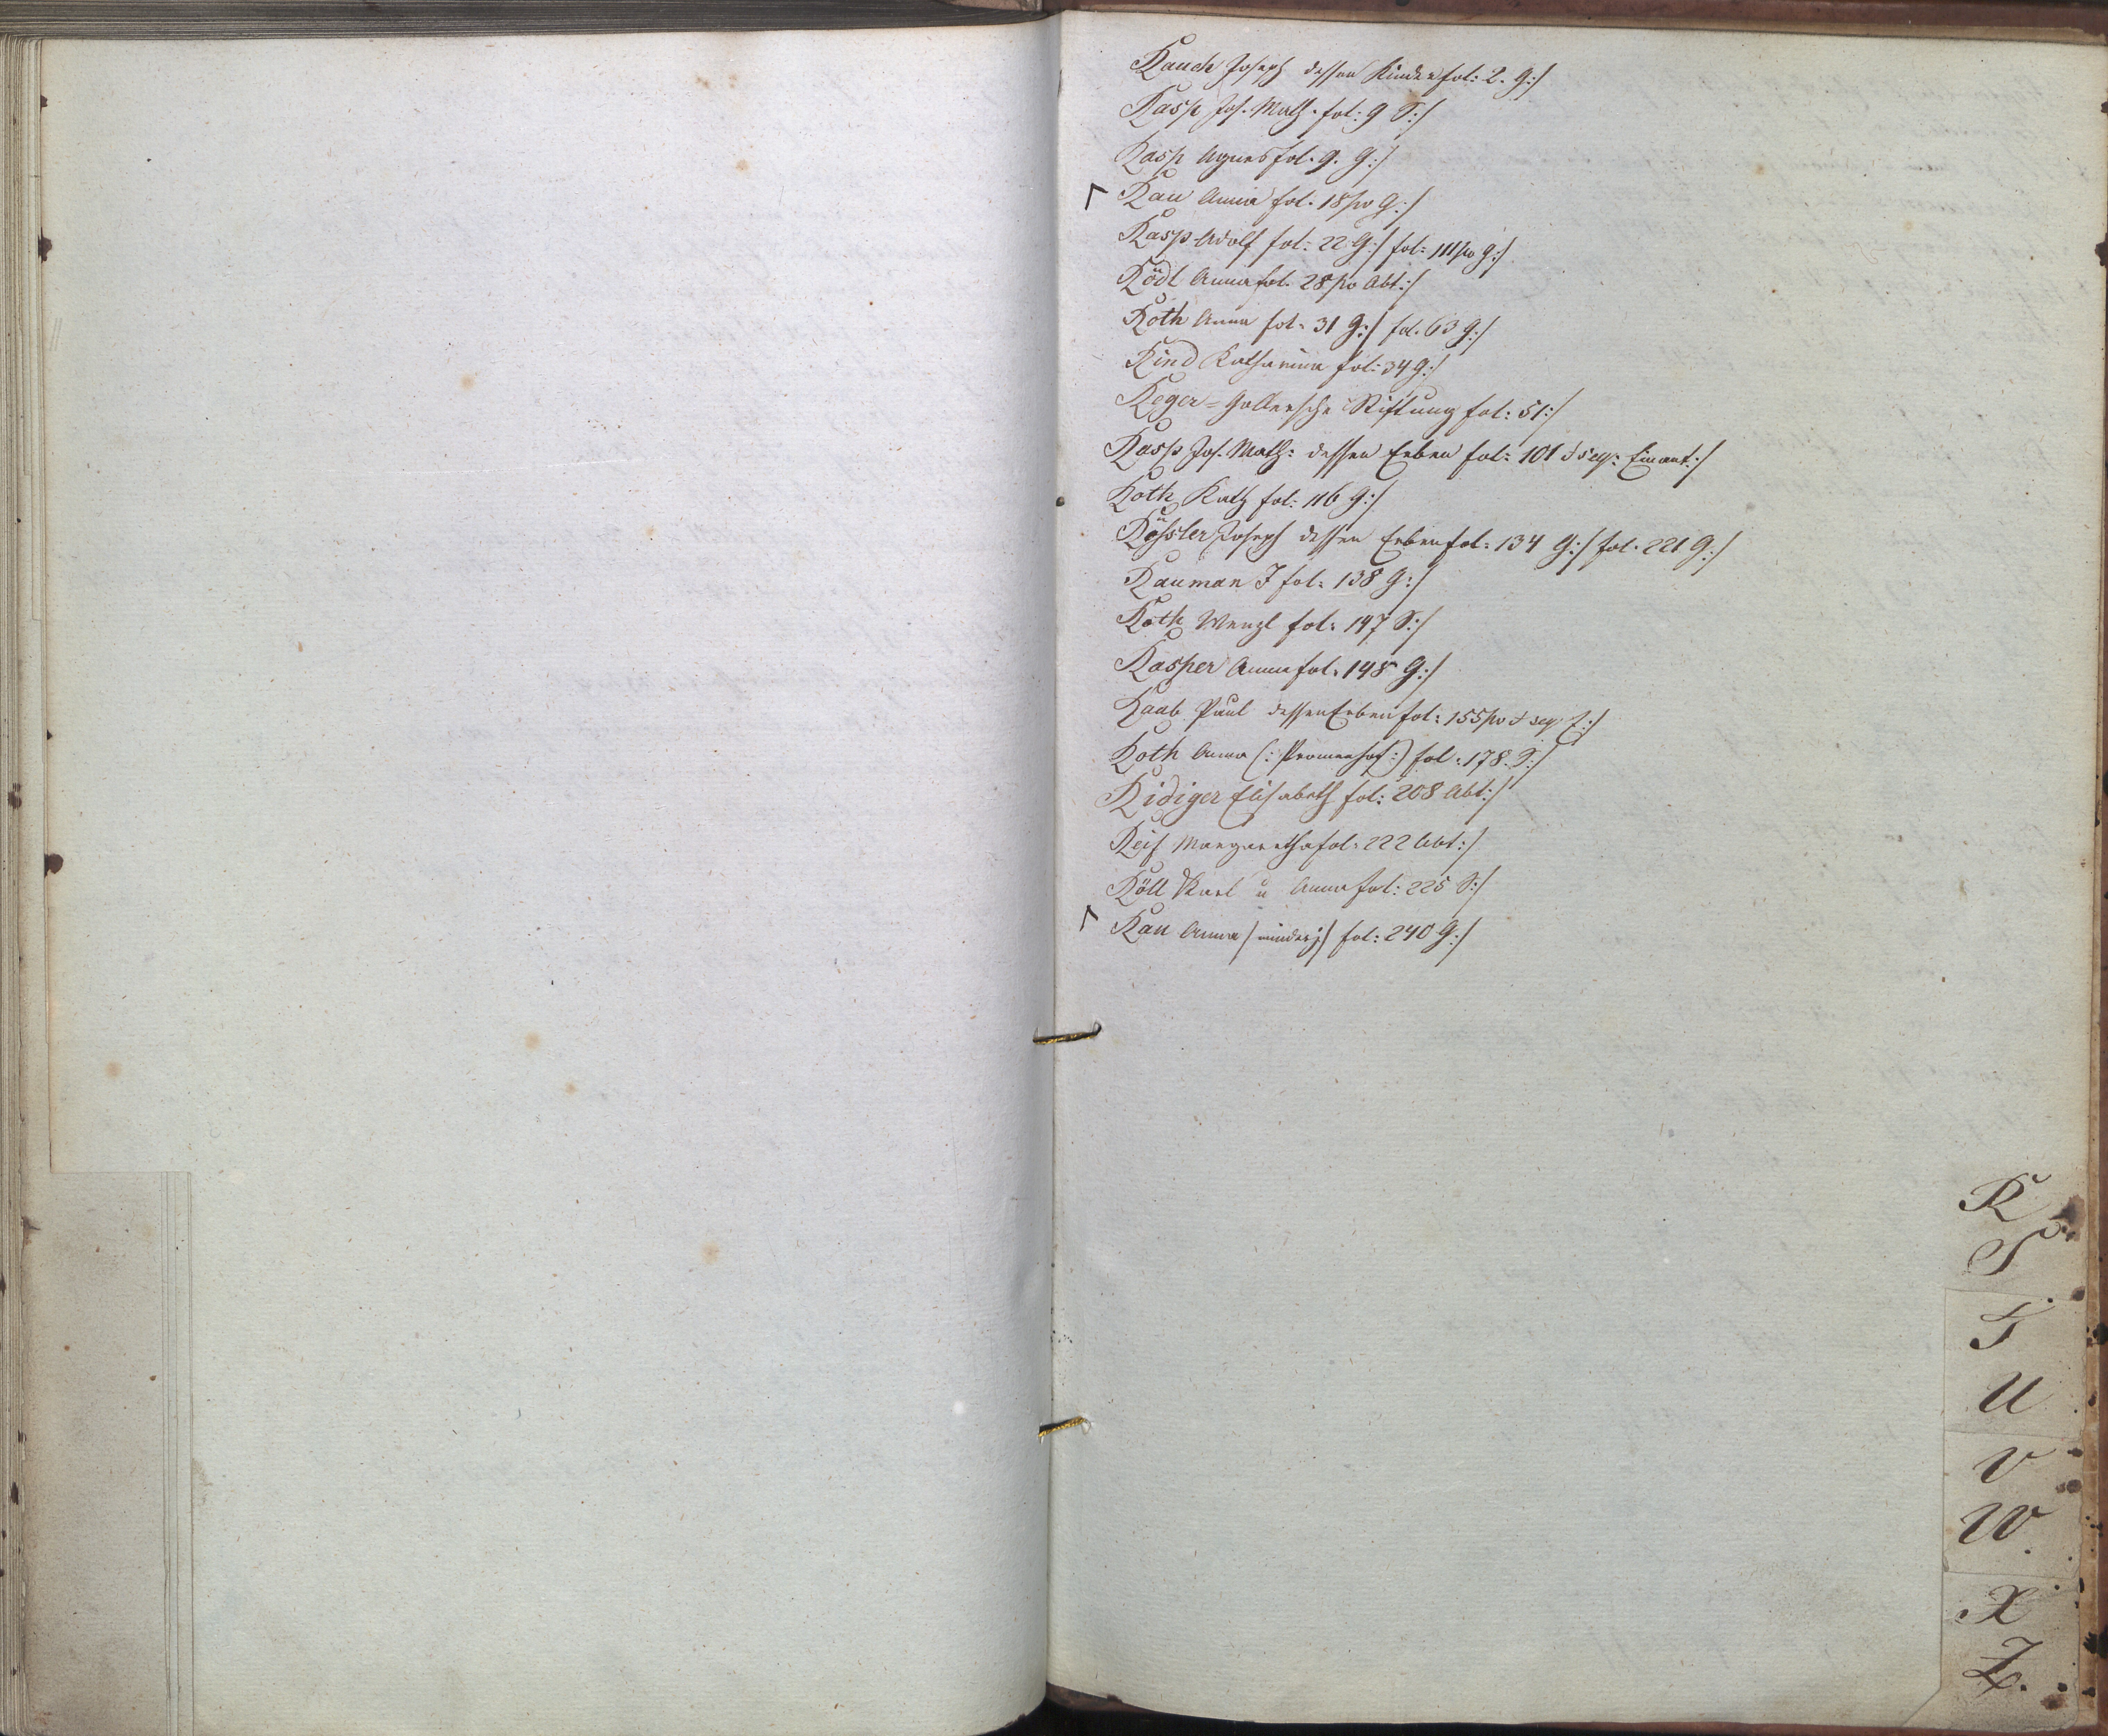 Rauch Joseph dessen Kinder fol: 2. G:/
Rasp Jos. Math. fol: 9 S:/
Rasp Agnes fol. 9. G:/
Rau Anna fol. 18 po G:/
Rasp Adolf fol: 22 G:/ fol: 111 po G:/
Rödl Anna fol. 28 po Abt:/
Roth Anna fol. 31 G:/ fol. 63 G:/
Rind Katharina fol: 34 G:/
Reger= Gollersche Stiftung fol: 51:/
Rasp Jos. Math: dessen Erben fol: 101 & seq: Einant:/
Roth Kath fol: 116 G:/
Rössler Joseph dessen Erben fol: 134 G:/ fol. 221 G:/
Rauman J fol: 138 G:/
Roth Wenzl fol: 147 S:/
Rasper Anna fol. 148 G:/
Raab Paul dessen Erben fol: 155 po & seq:
Roth Anna (: Promenhof:) fol: 178. S:/
Ridiger Elisabeth fol: 208 Abt:/
Reif Margaretha fol: 222 Abt:/
Röll Karl u Anna fol: 225 S:/
Rau Anna /minderj/ fol: 240 G:/
R
S
T
U
V
W.
X
Z.